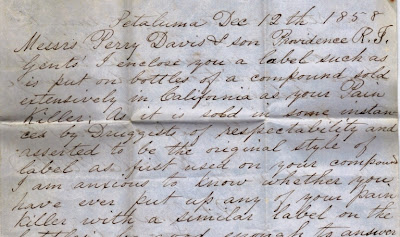 Petaluma Dec 12th 1858
Messrs Perry Davis & son Providence R.I.
Gents' I enclose you a label such as
is put on bottles of a compound sold
extensively in California as your Pain
Killer. As it is sold in some instan-
ces by Druggists of respectability and
asserted to be the original style of
label as first used on your compound
I am anxious to know whether you
have ever put up any of your pain
killer with a similar label on the
bottles be good enough to answer